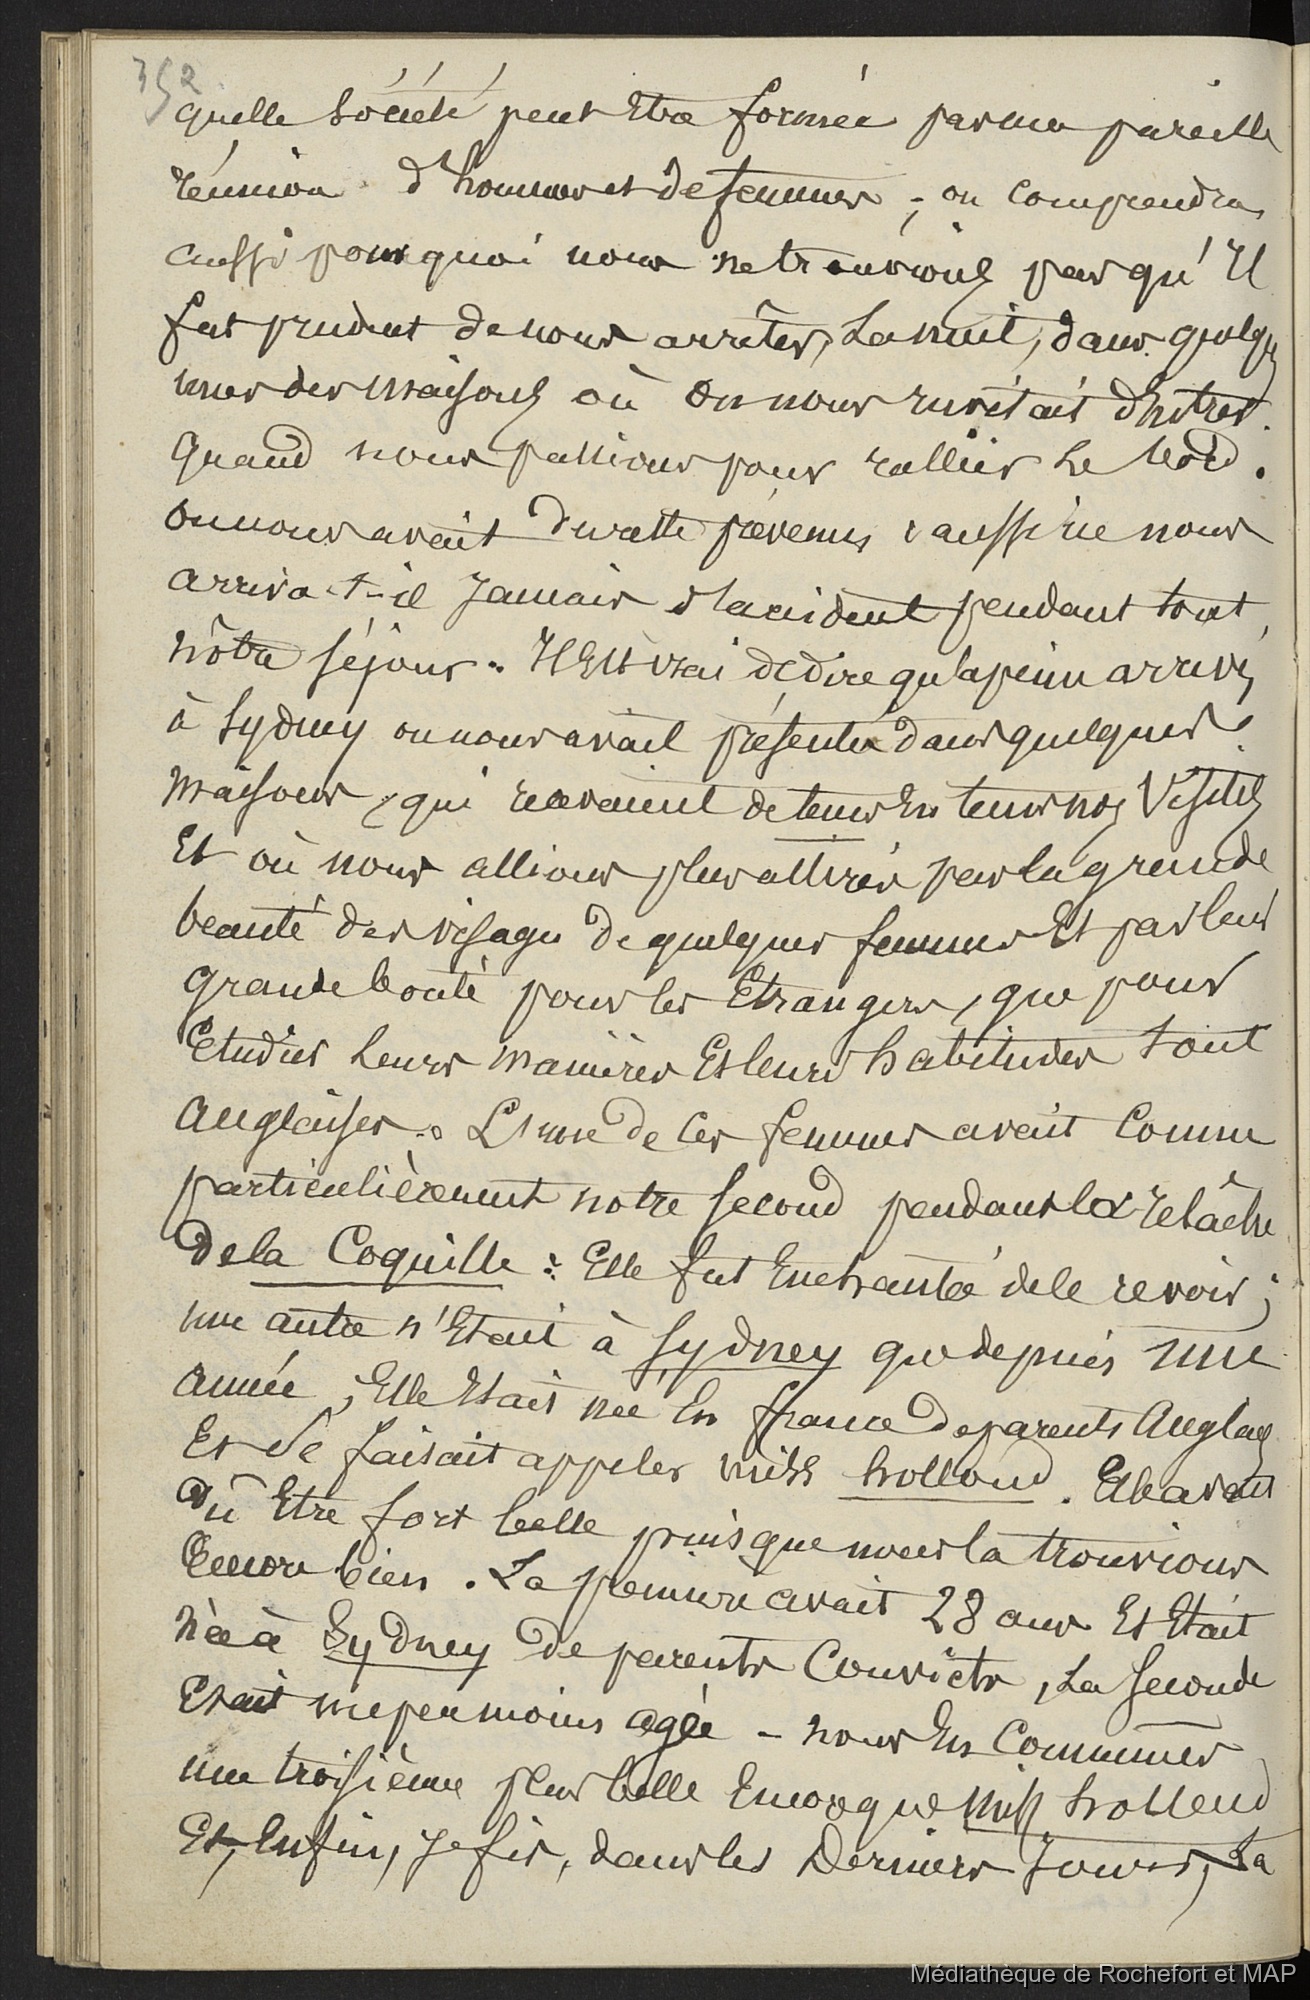 352
quelle société peut Etre formée par une pareille
réunion d'hommes et de femmes ; on comprendra
aussi pourquoi nous ne trouvions pas qu'Il
fut prudent de nous arrêter, La nuit, dans quelqu
unes des maisons où on nous invitait d'Entrer.
quand nous passions pour rallier Le bord.
on nous avait Du reste prévenus & aussi ne nous
arriva-t-il Jamais d'accident pendant tout
nôtre séjour. Il Est vrai de dire qu'a peine arrivés
à Sydney on nous avait présentés dans quelques
maisons, qui recevaient de tems En tems nos Visites
Et où nous allions plus attirés par la grande
beauté des visages de quelques femmes Et par leur
grande bonté pour les Etrangers, que pour
Etudier Leurs manières Et leurs habitudes tout
anglaises. L'une de Ces femmes avait Connu
particulièrement notre Second pendant la relâche
de la Coquille : Elle fut Enchantée de le revoir ;
une autre n'Etait à Sydney que depuis une
année ; Elle Etait née En france de parents Anglais
Et Se faisait appeler miss holland. Elle avait
dû Etre fort belle puisque nous la trouvions
Encore bien. La première avait 28 ans Et Etait
née à Sydney De parents Convicts, La Seconde
Etait un peu moins agée - nous En Connumes
une troisième plus belle Encore que Miss holland
Et, Enfin, Je fis, dans les Derniers Jours, La
Médiathèque de Rochefort et MAP